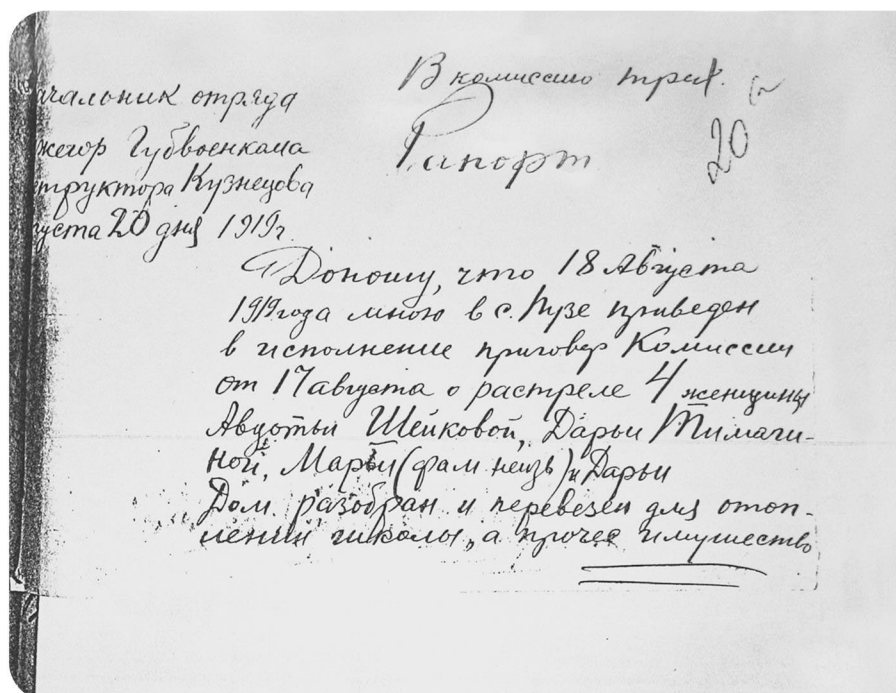 ачальник отряда
жегор Губвоенкома
структора Кузнецова
густа 20 дня 1919г.
В комиссию
20
Рапорт
Доношу, что 18 Августа
1919 года мною в с. Пузе приведен
в исполнение приговор Комиссии
от 17 августа о растреле 4 женщины
Авдотьи Шейковой, Дарьи Тимаги-
ной, Марьи (фам неизв) и Дарьи
Дом разобран и перевезен для отоп-
ления школы, а прочее имущество